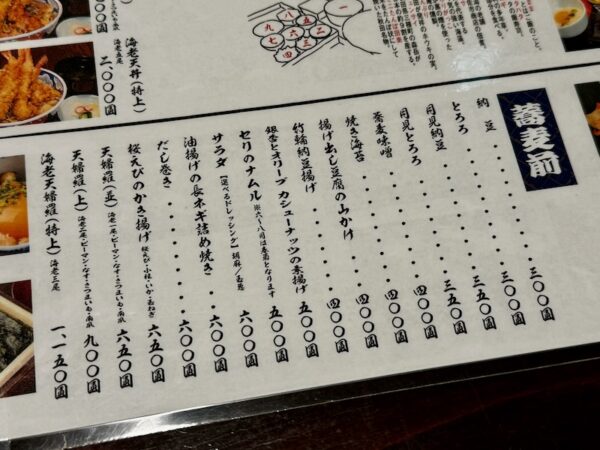 蕎麦前
納豆・・・・・・三〇〇圓
とろろ・・・・・・三〇〇圓
月見納豆・・・・・・三五〇圓
月見とろろ・・・・・・三五〇圓
蕎麦味噌・・・・・・四〇〇圓
焼き海苔・・・・・・四〇〇圓
揚げ出し豆腐の山かけ 四〇〇圓
竹輪納豆揚げ・・・・・・五〇〇圓
銀杏とオリーブ カシューナッツの素揚げ 五〇〇圓
セリのナムル ※六～八月は春菊となります 五〇〇圓
サラダ【選べるドレッシング】胡麻/玉葱 六〇〇圓
油揚げの長ネギ詰め焼き・・・・六〇〇圓
だし巻き・・・・・・六〇〇圓
桜えびのかき揚げ 桜えび・小柱・いか・玉ねぎ 六五〇圓
天婦羅(並) 海老一尾・ピーマン・なす・さつまいも・南瓜 六五〇圓
天婦羅(上) 海老二尾・ピーマン・なす・さつまいも・南瓜 九〇〇圓
海老天婦羅(特上) 海老三尾 一、一五〇圓
海老天丼(特上)
海老五尾
二、〇〇〇圓
一
二
三
四
五
六
七
八
九